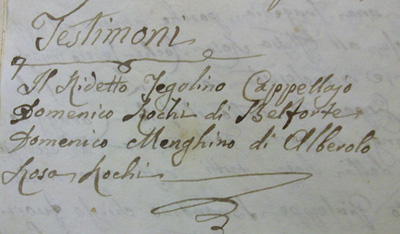 Testimoni
Il Ridetto Tegolino Cappellajo
Domenico Rochi di Belforte
Domenico Menghino di Alberolo
Rosa Rochi